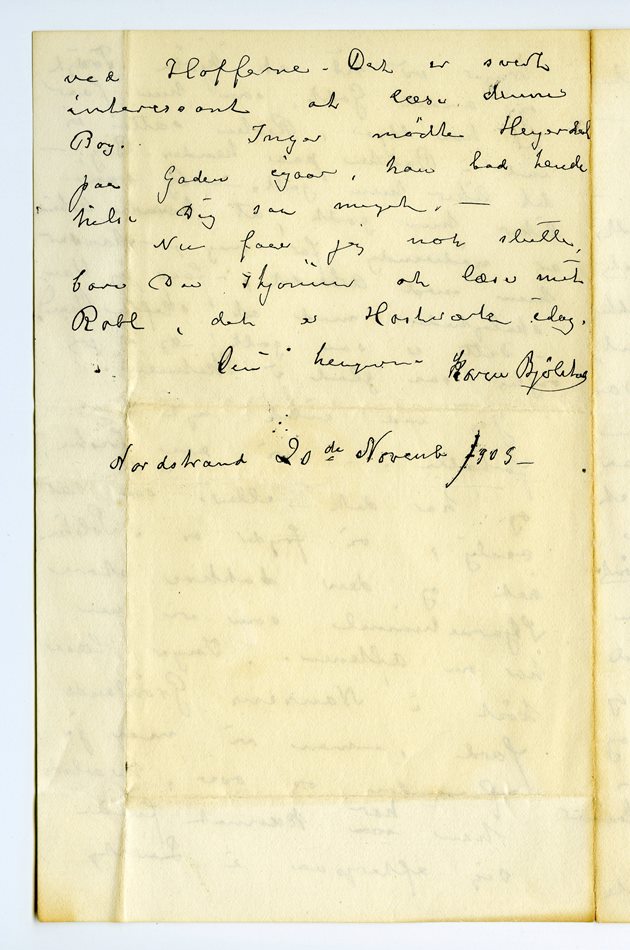 ved Hofferne – Det er svert
interessant at læse denne
Bog. Inger mødte Heyerdal
paa Gaden igaar, han bad hende
hilse Dig saa meget. —
Nu faar jeg nok slutte,
bare Du at læse mit
Rabl, det er Hostværten idag.
Din hengivne Karen Bjølstad
Nordstrand 20de Novemb 1905 –